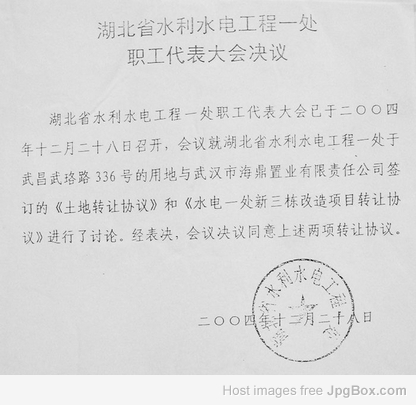 湖北省水利水电工程一处
职工代表大会决议
湖北省水利水电工程一处职工代表大会已于二〇〇四
年十二月二十八日召开，会议就湖北省水利水电工程一处于
武昌武珞路 336 号的用地与武汉市海鼎置业有限责任公司签
订的《土地转让协议》和《水电一处新三栋改造项目转让协
议》进行了讨论。经表决，会议决议同意上述两项转让协议。
湖北省水利水电工程一处
二〇〇四年十二月二十八日
Host images free JpgBox.com